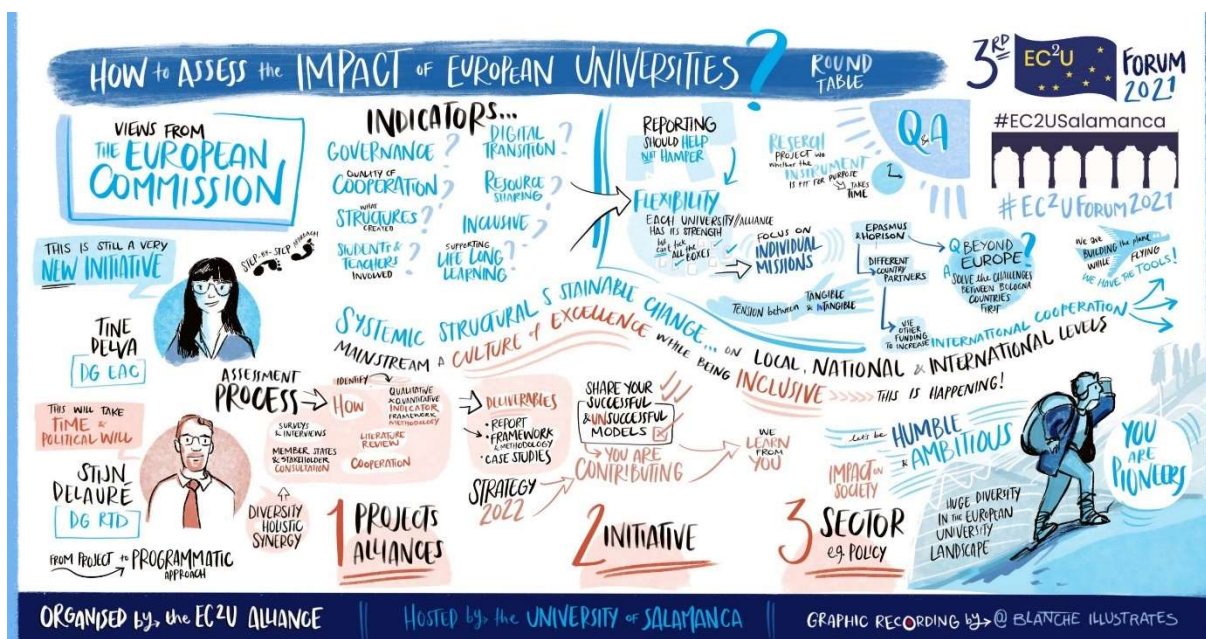 HOW to ASSESS the IMPACT of EUROPEAN UNIVERSITIES?
ROUND
TABLE
3RD
EC2U
FORUM
2021
#EC2USalamanca
#EC2UFORUM2021
VIEWS FROM
THE EUROPEAN
COMMISSION
THIS IS STILL A VERY
NEW INITIATIVE
STEP-BY-STEP APPROACH
TINE
DELVA
DG EAC
THIS WILL TAKE
TIME &
POLITICAL WILL
STIJN
DELAURÉ
DG RTD
FROM PROJECT to PROGRAMMATIC
APPROACH
DIVERSITY
HOLISTIC
SYNERGY
INDICATORS...
GOVERNANCE?
QUALITY OF
COOPERATION?
WHAT
STRUCTURES?
CREATED
STUDENTS &
TEACHERS?
INVOLVED
DIGITAL
TRANSITION?
RESOURCE
SHARING?
INCLUSIVE?
SUPPORTING
LIFE LONG
LEARNING?
REPORTING
SHOULD HELP
NOT HAMPER
FLEXIBILITY
EACH UNIVERSITY//ALLIANCE
HAS ITS STRENGTH
but can't tick
all the
BOXES
FOCUS ON
INDIVIDUAL
MISSIONS
TENSION between TANGIBLE
& INTANGIBLE
RESERCH
PROJECT ive
whether the
INSTRUMENT
IS FIT FOR PURPOSE
TAKES
TIME
Q&A
ERASMUS
& HORISON
DIFFERENT
COUNTRY
PARTNERS
USE
OTHER
FUNDING
TO INCREASE
INTERNATIONAL COOPERATION
Q BEYOND
EUROPE?
A SOLVE the CHALLENGES
BETWEEN BOLOGNA
COUNTRIES
FIRST
We ARE
BUILDING the plane
WHILE FLYING
WE HAVE THE TOOLS!
SYSTEMIC STRUCTURAL S STAINABLE CHANGE... ON LOCAL, NATIONAL & INTERNATIONAL LEVELS
MAINSTREAM A CULTURE of EXCELLENCE WHILE BEING INCLUSIVE
THIS IS HAPPENING!
ASSESSMENT
PROCESS
IDENTIFY
HOW
QUALITATIVE
& QUANDITATIVE
INDICATOR
FRAMEWORK
METHODOLOGY
SURVEYS
& INTERVIEWS
MEMBER STATES
& STAKEHOLDER
CONSULTATION
LITERATURE
REVIEW
COOPERATION
DELIVERABLES
• REPORT
• FRAMEWORK
& METHODOLOGY
• CASE STUDIES
STRATEGY
2022
SHARE YOUR
SUCCESSFUL
& UNSUCCESSFUL
MODELS
YOU ARE
CONTRIBUTING
WE
LEARN
FROM
YOU
1 PROJECTS
ALLIANCES
2 INITIATIVE
3 SECTOR
eg. POLICY
IMPACT on
SOCIETY
let's be HUMBLE
& AMBITIOUS
HUGE DIVERSITY
IN THE EUROPEAN
UNIVERSITY
LANDSCAPE
YOU
ARE
PIONEERS
ORGANISED by the EC2U ALLIANCE
HOSTED by the UNIVERSITY of SALAMANCA
GRAPHIC RECORDING by @ BLANCHE ILLUSTRATES